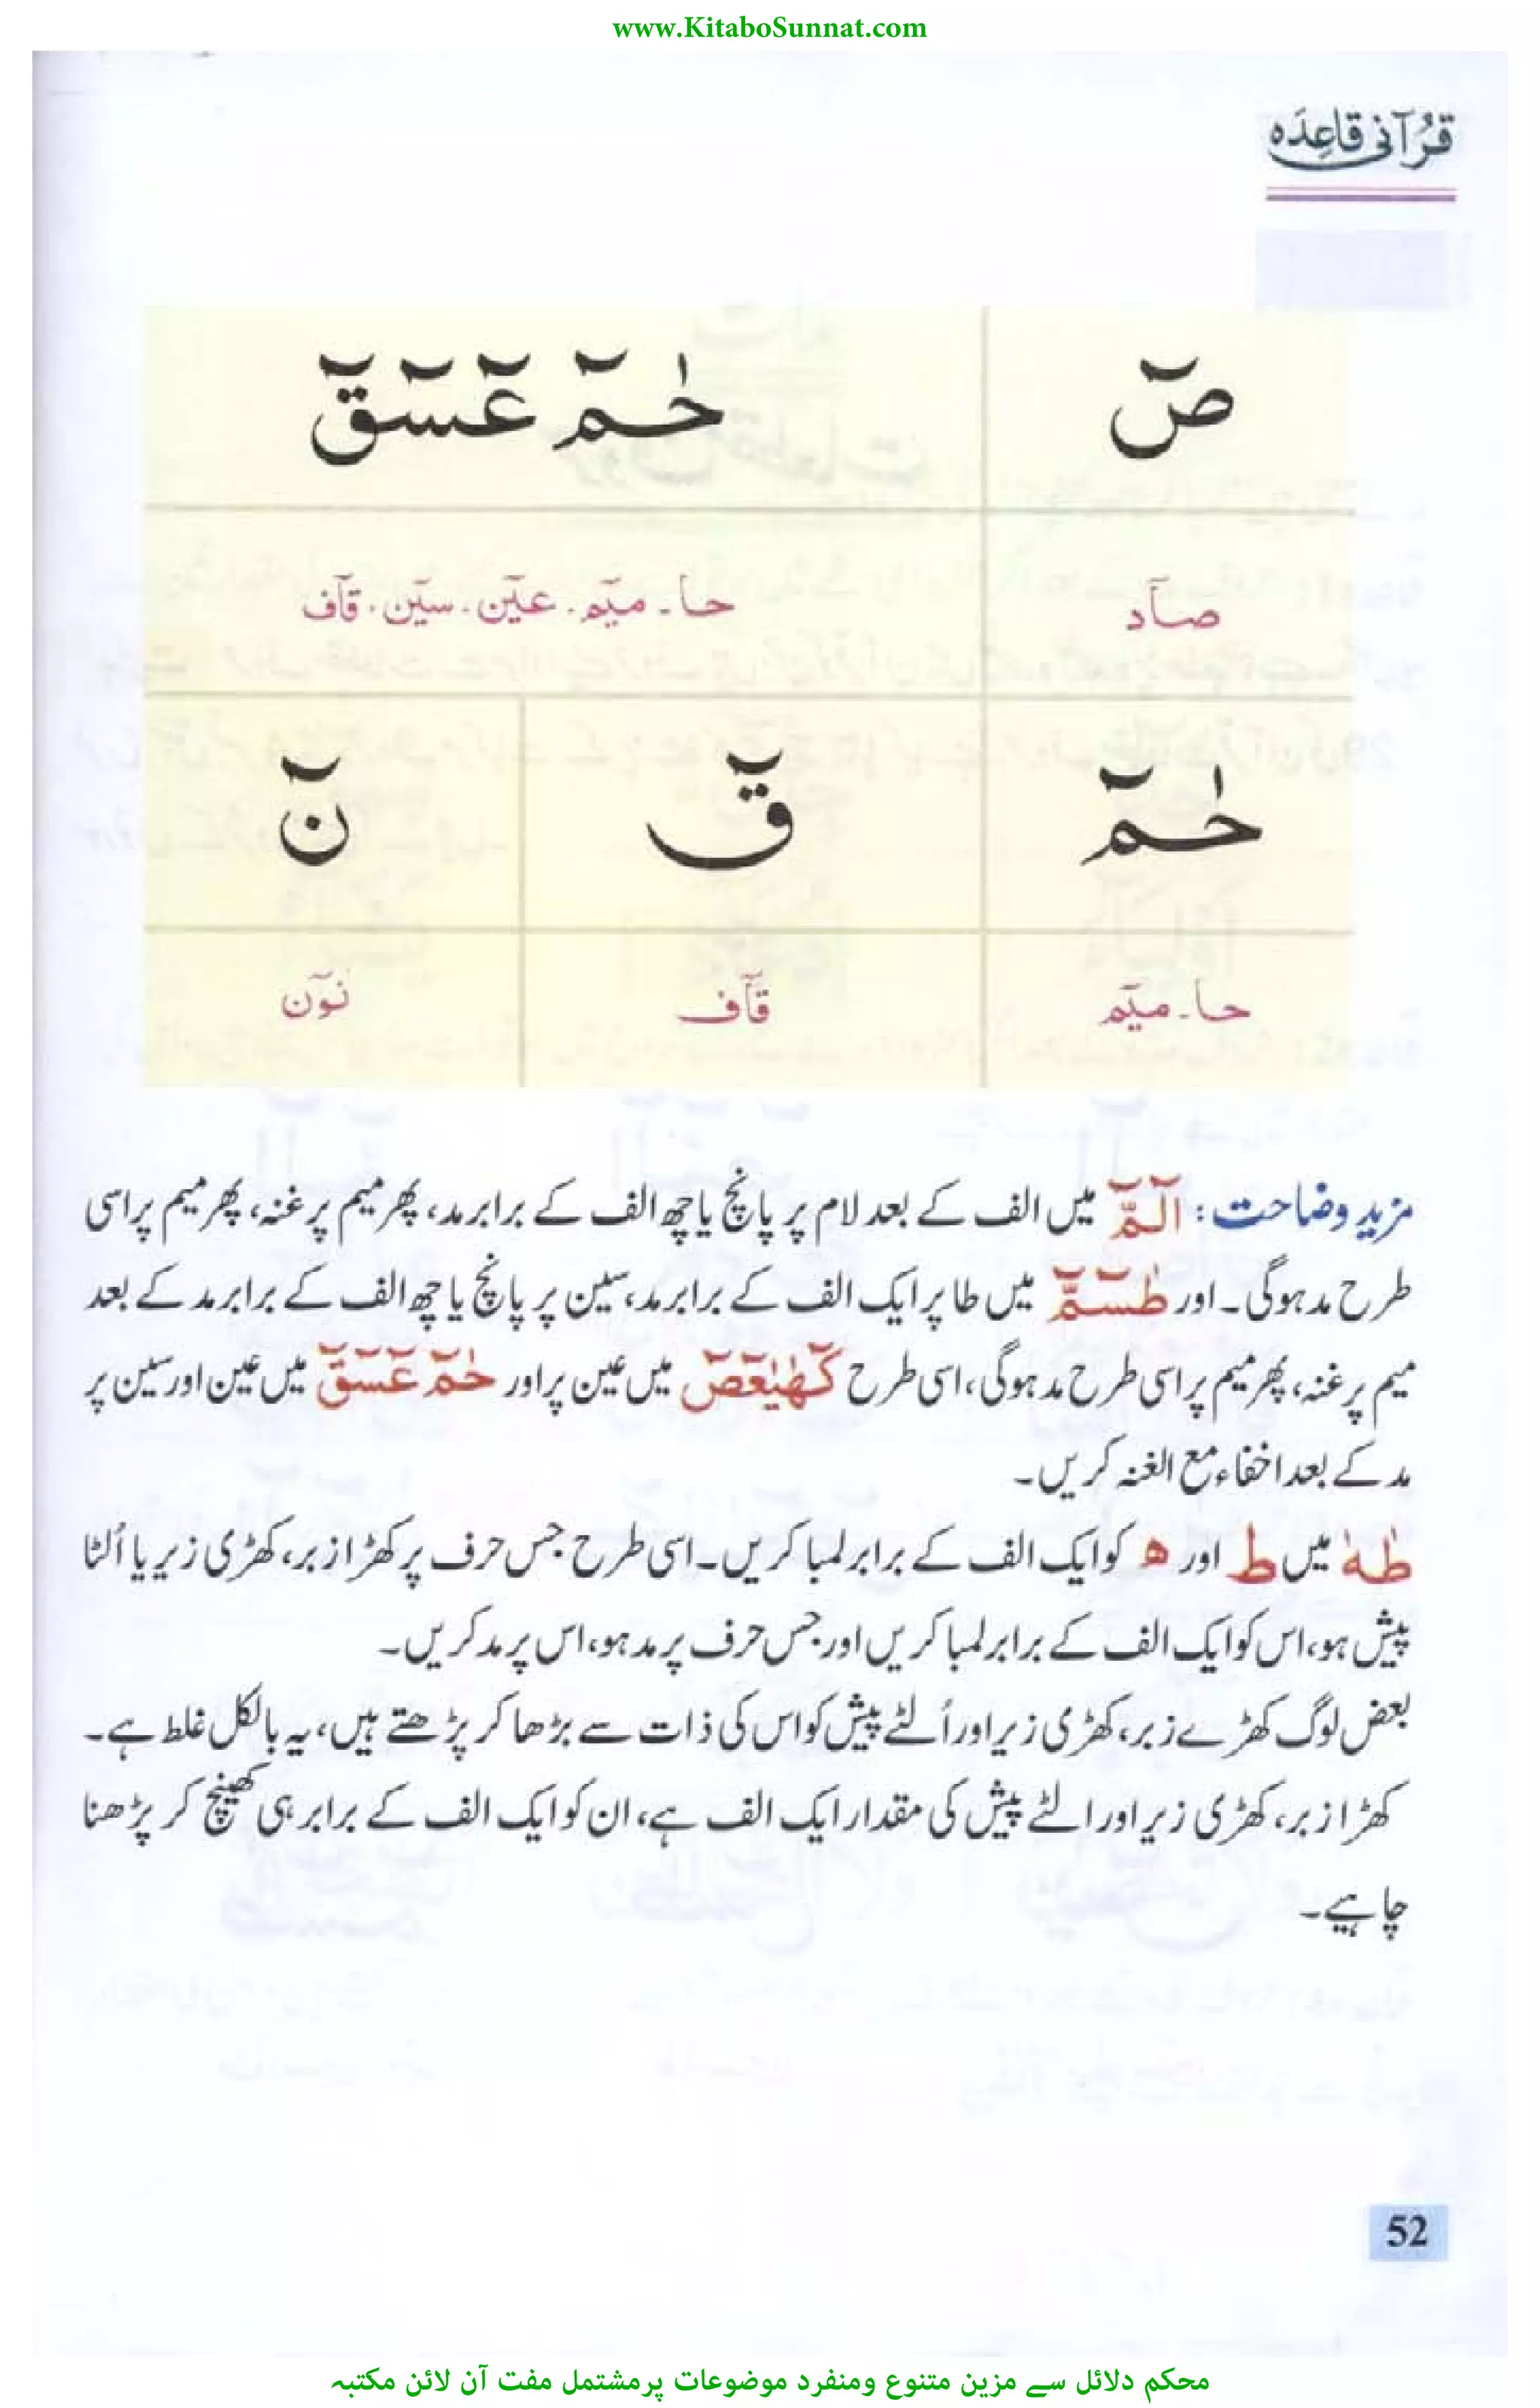 www.KitaboSunnat.com
قرآنی قاعدہ
صٓ حٰمٓ عٓسٓقٓ
صآد حا۔ میٓم۔ عیٓن۔ سیٓن۔ قآف
حٰمٓ قٓ نٓ
حا۔ میٓم قآف نوٓن
مزید وضاحت: آلٓمّٓ میں الف کے بعد لام پر پانچ یا چھ الف کے برابر مد، پھر میم پر غنہ، پھر میم پر اسی
طرح مد ہوگی۔ اور طٰسٓمّٓ میں طا پر ایک الف کے برابر مد، سین پر پانچ یا چھ الف کے برابر مد کے بعد
میم پر غنہ، پھر میم پر اسی طرح مد ہوگی، اسی طرح کٓھٰیٰعٓصٓ میں عین پر اور حٰمٓ عٓسٓقٓ میں عین اور سین پر
مد کے بعد اخفاء مع الغنہ کریں۔
طٰهٰ میں ط اور ہ کو ایک الف کے برابر لمبا کریں۔ اسی طرح جس حرف پر کھڑا زبر، کھڑی زیر یا اُلٹا
پیش ہو، اس کو ایک الف کے برابر لمبا کریں اور جس حرف پر مد ہو، اس پر مد کریں۔
بعض لوگ کھڑے زبر، کھڑی زیر اور اُلٹے پیش کو اس کی ذات سے بڑھا کر پڑھتے ہیں، یہ بالکل غلط ہے۔
کھڑا زبر، کھڑی زیر اور الٹے پیش کی مقدار ایک الف ہے، ان کو ایک الف کے برابر ہی کھینچ کر پڑھنا
چاہیے۔
52
محکم دلائل سے مزین متنوع ومنفرد موضوعات پر مشتمل مفت آن لائن مکتبہ